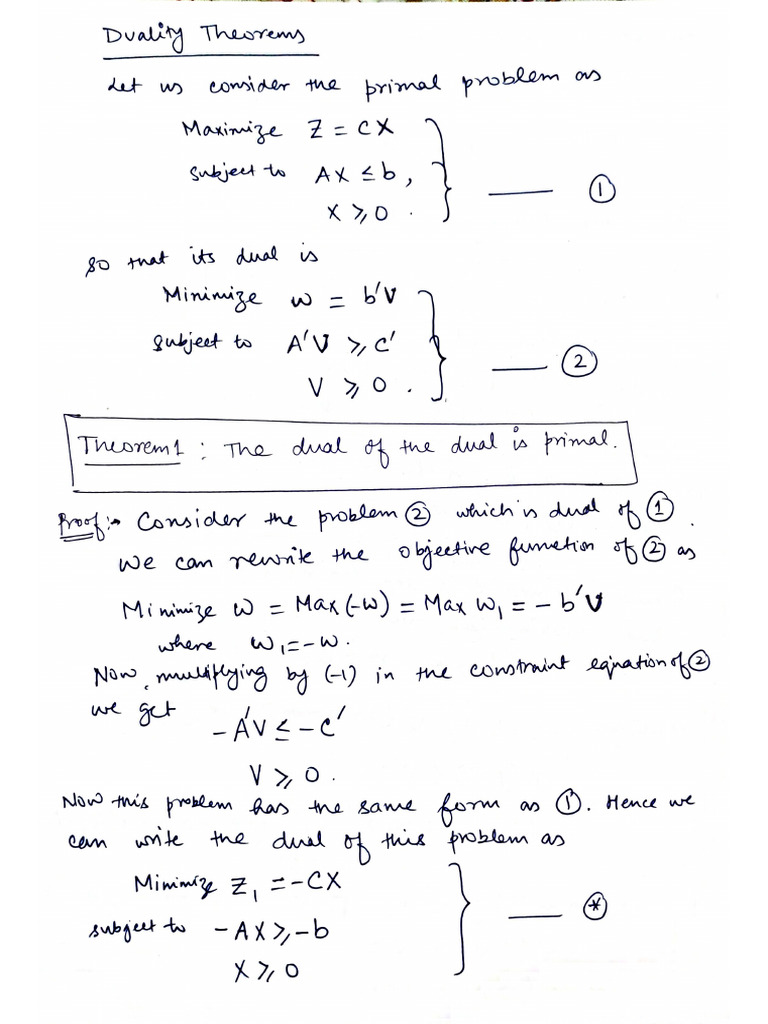 Duality Theorems
Let us consider the primal problem as
Maximize Z = CX
subject to AX ≤ b,
X ≥ 0. —— ①
so that its dual is
Minimize w = b'V
subject to A'V ≥ C'
V ≥ 0. —— ②
Theorem 1 : The dual of the dual is primal.
Proof:- Consider the problem ② which is dual of ①.
We can rewrite the objective function of ② as
Minimize w = Max (-w) = Max w₁ = - b'V
where w₁ = -w.
Now, multiplying by (-1) in the constraint equation of ②
we get
-A'V ≤ -C'
V ≥ 0.
Now this problem has the same form as ①. Hence we
can write the dual of this problem as
Minimize Z₁ = -CX
subject to -AX ≥ -b —— ⊛
X ≥ 0